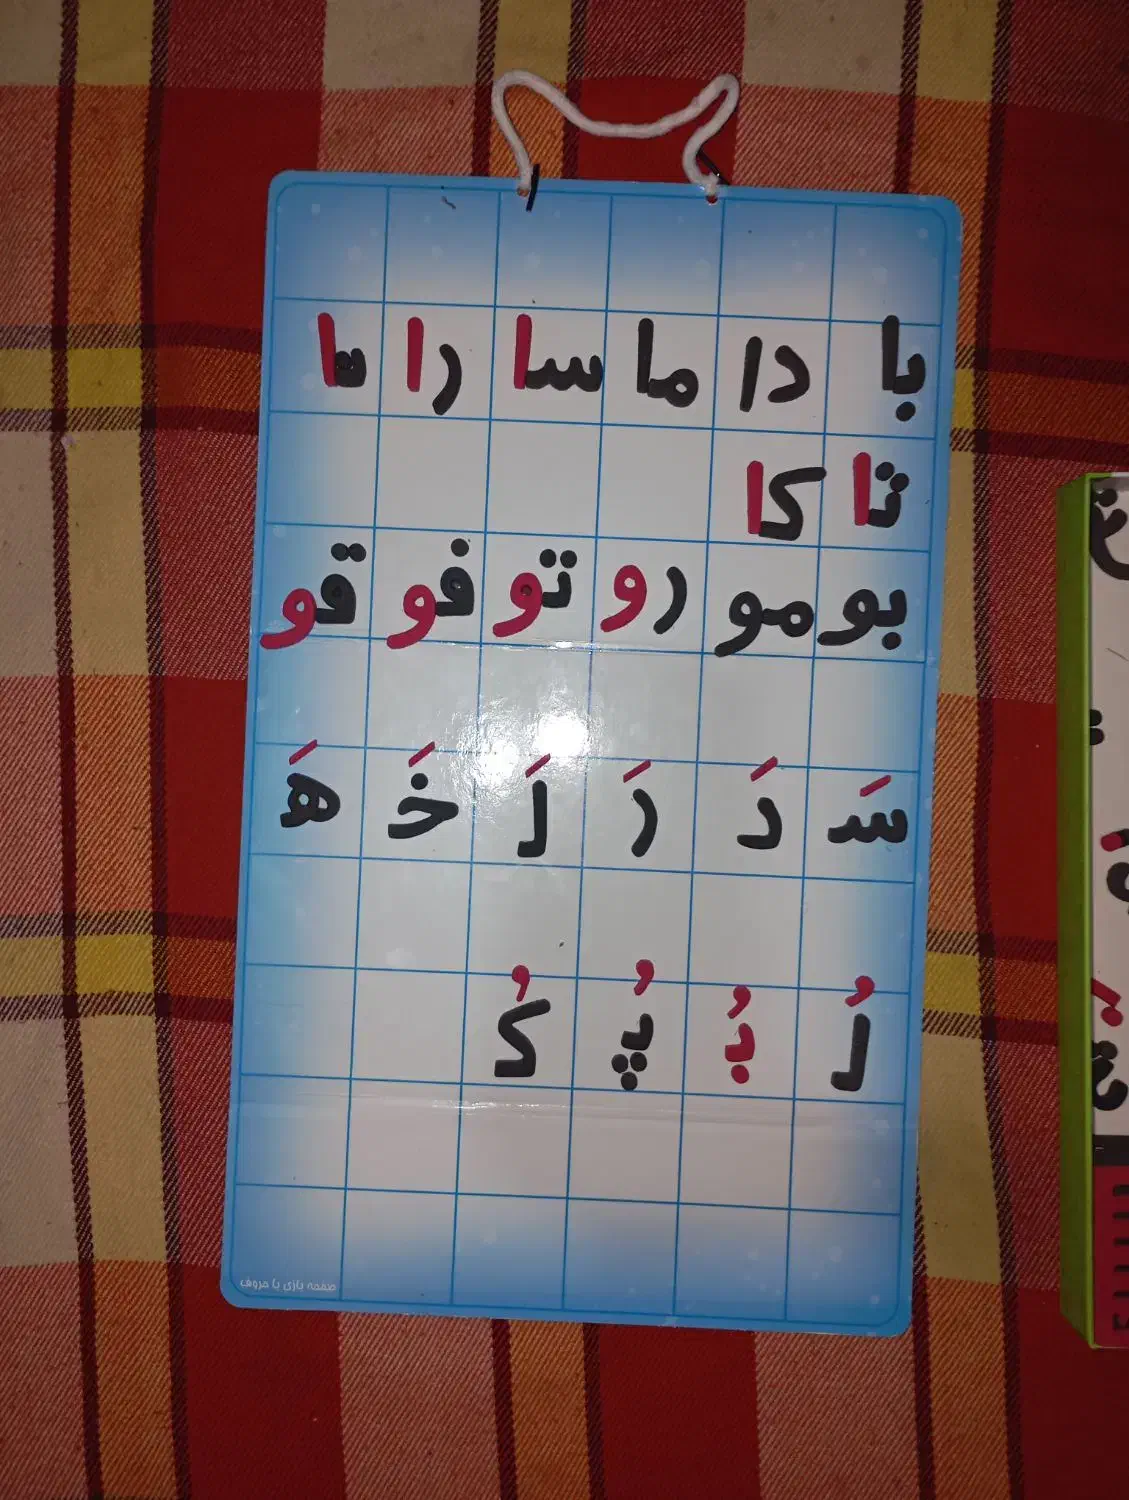 با دا ما سا را
تا کا
بو مو رو تو فو قو
سَ دَ رَ لَ خَ هَ
لُ بُ پُ کُ
صفحه بازی با حروف